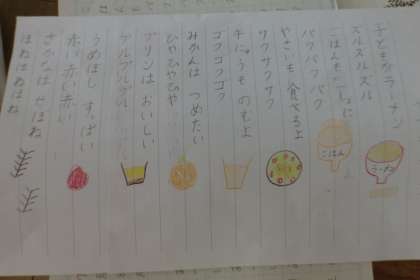 子どもがラーメン
ズルズルズル
ごはんも一しょに
パクパクパク
やさいも 食べるよ
サクサクサク
牛にゅうも のむよ
ゴクゴクゴク
みかんは つめたい
ひやひやひや
プリンは おいしい
プルプルプル
うめぼし すっぱい
赤い赤い赤い
さかなは せぼね
ほねほねほね
ラーメン
ごはん